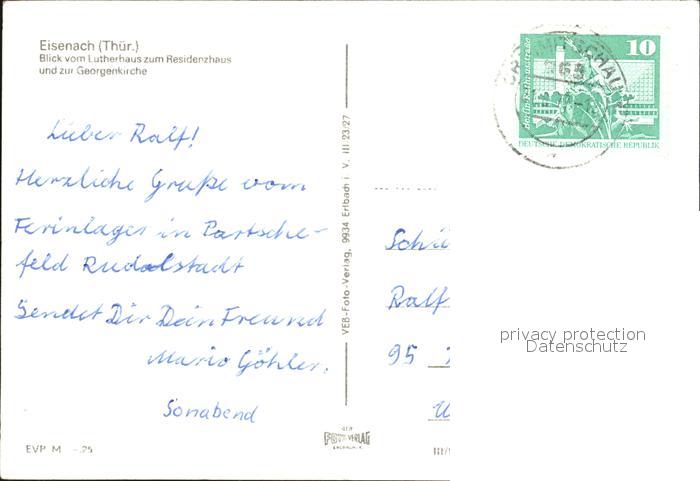 Eisenach (Thür.)
Blick vom Lutherhaus zum Residenzhaus
und zur Georgenkirche
Lieber Ralf!
Herzliche Gruße vom
Ferinlager in Partsche-
feld Rudolstadt
Sendet Dir Dein Freund
Mario Göhler.
Sonabend
EVP M -.25
VEB-Foto-Verlag, 9934 Erlbach i. V. III 23/27
10
berlin-Rathausstraße
DEUTSCHE DEMOKRATISCHE REPUBLIK
Schü
Ralf
95
privacy protection
Datenschutz